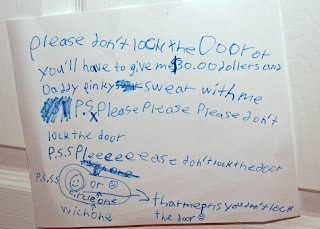 please don't lock the Door or
you'll have to give me $30.00 dollers and
Daddy pinky swear with me
P.S. Please Please Please don't
lock the door
P.S.S Pleeeeease don't lock the door
P.S.S.S or
circle one
wich one
that meens you don't lock
the door